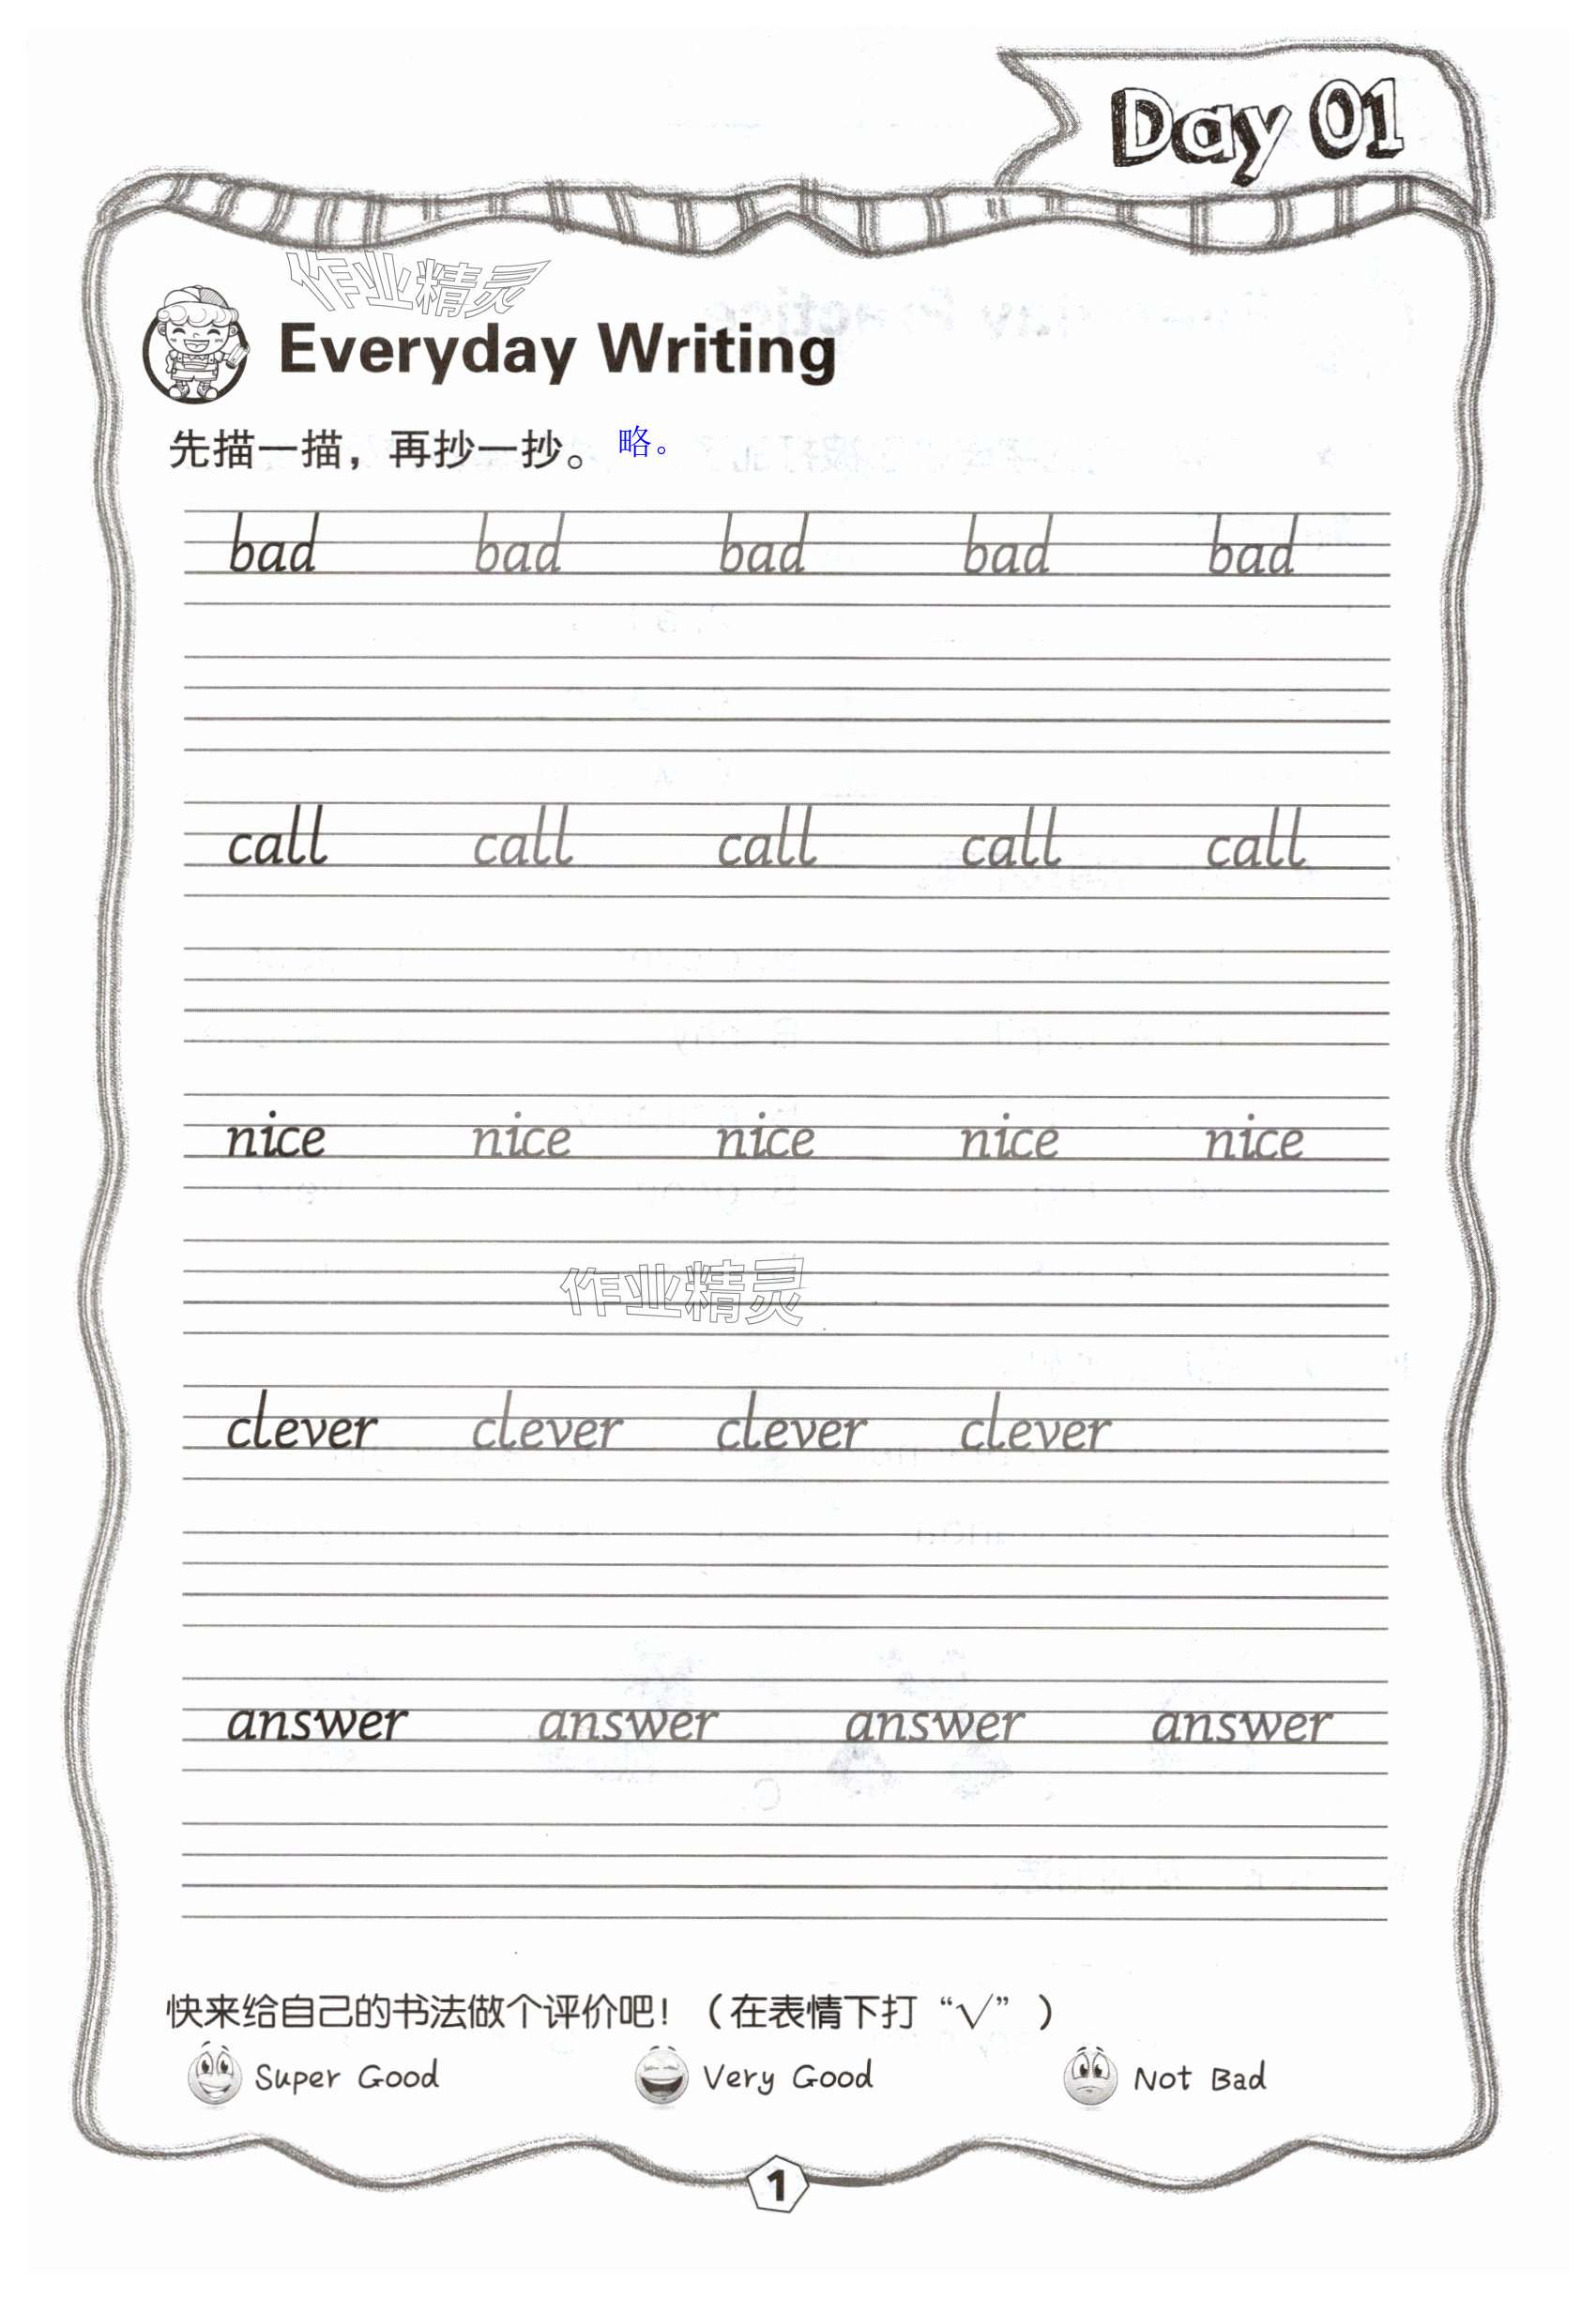 Day 01
作业精灵
Everyday Writing
先描一描，再抄一抄。 略。
bad bad bad bad bad
call call call call call
nice nice nice nice nice
作业精灵
clever clever clever clever
answer answer answer answer
快来给自己的书法做个评价吧！（在表情下打“√”）
Super Good Very Good Not Bad
1